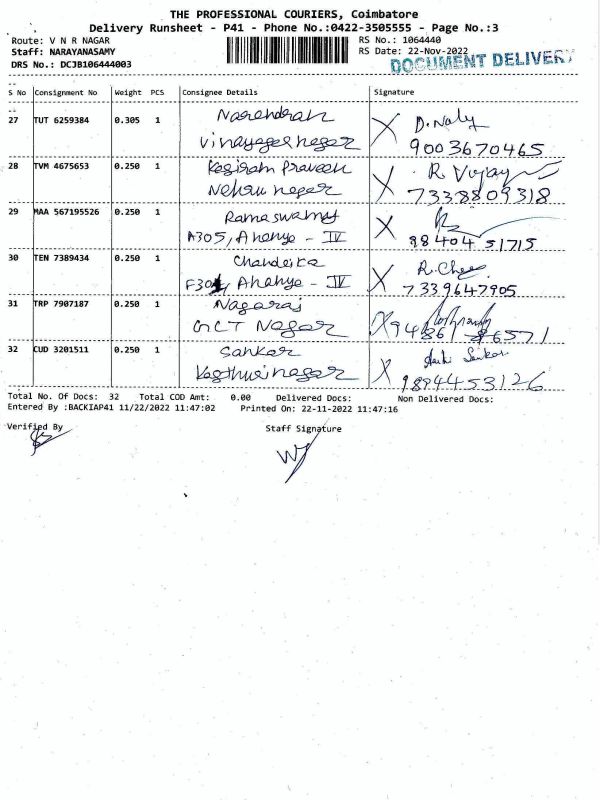 THE PROFESSIONAL COURIERS, Coimbatore
Delivery Runsheet - P41 - Phone No.:0422-3505555 - Page No.:3
Route: V N R NAGAR RS No.: 1064440
Staff: NARAYANASAMY RS Date: 22-Nov-2022
DRS No.: DCJB106444003 DOCUMENT DELIVERY
S No Consignment No Weight PCS Consignee Details Signature
27 TUT 6259384 0.305 1 Narendran
Vinayager nagar 9003670465
28 TVM 4675653 0.250 1 Praveen R. Vijay
Nehru nagar 7338809318
29 MAA 567195526 0.250 1 Ramaswamy
A305, Ananya - IV 98404 51715
30 TEN 7389434 0.250 1 Chandrika
Ananya - IV 7339647905
31 TRP 7907187 0.250 1 Nagaraj
GCT Nagar
32 CUD 3201511 0.250 1 Sankar
9894453126
Total No. Of Docs: 32 Total COD Amt: 0.00 Delivered Docs: Non Delivered Docs:
Entered By :BACKIAP41 11/22/2022 11:47:02 Printed On: 22-11-2022 11:47:16
Verified By Staff Signature